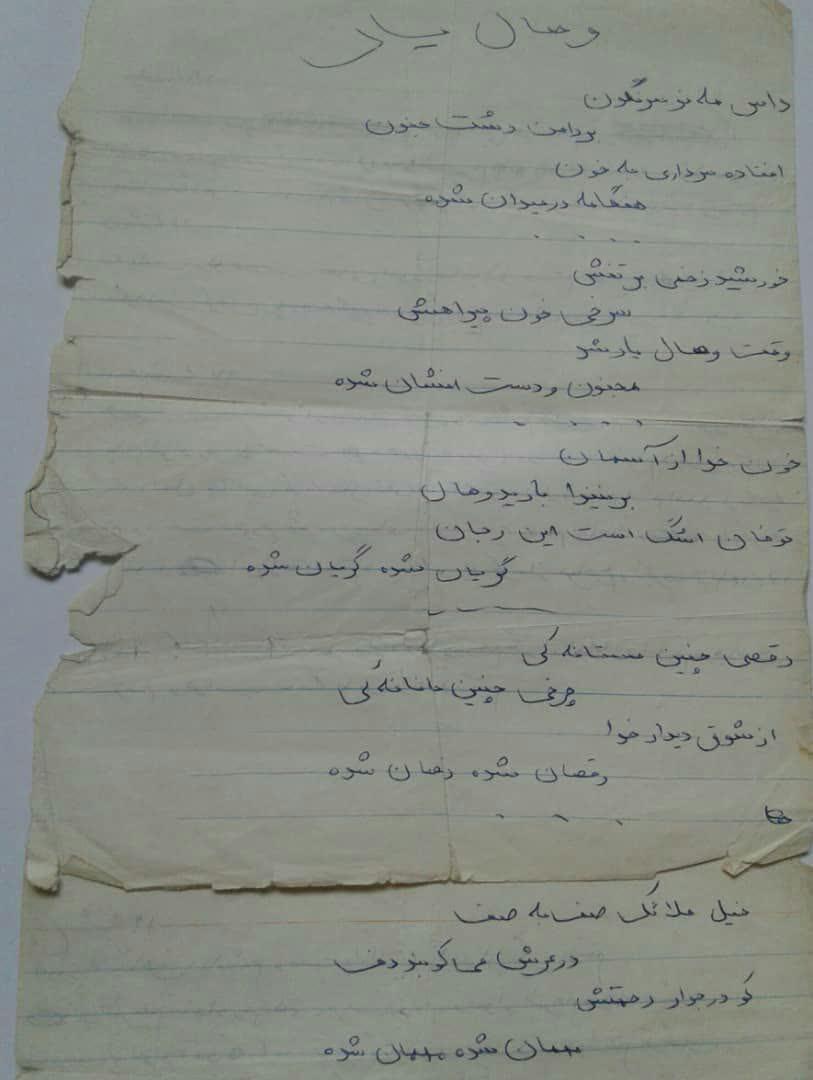 وصال یار
داس مه نو سرنگون
بر دامن دشت جنون
افتاده سرداری به خون
هنگامه در میدان شده
خورشید زخمی بر تنش
سرخی خون پیراهنش
وقت وصال یار شد
مجنون و دست افشان شده
خون خدا از آسمان
بر نینوا بارید و هان
توفان اشک است این زمان
گریان شده گریان شده
رقصی چنین مستانه کی
چرخی چنین جانانه کی
از شوق دیدار خدا
رقصان شده رقصان شده
خیل ملائک صف به صف
در عرش می کوبند دف
کو در جوار رحمتش
مهمان شده مهمان شده